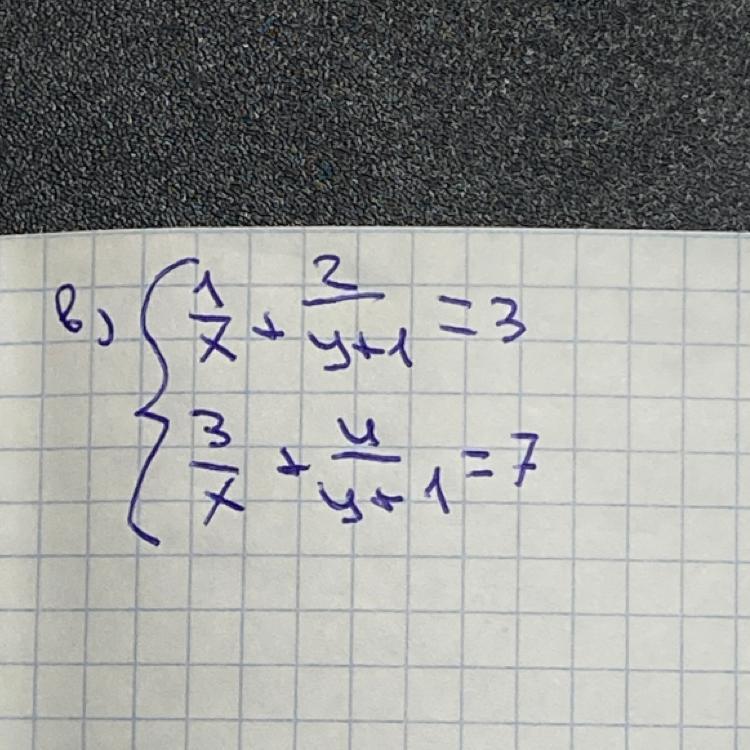 в) { 1/x + 2/(y+1) = 3
3/x + 4/(y+1) = 7